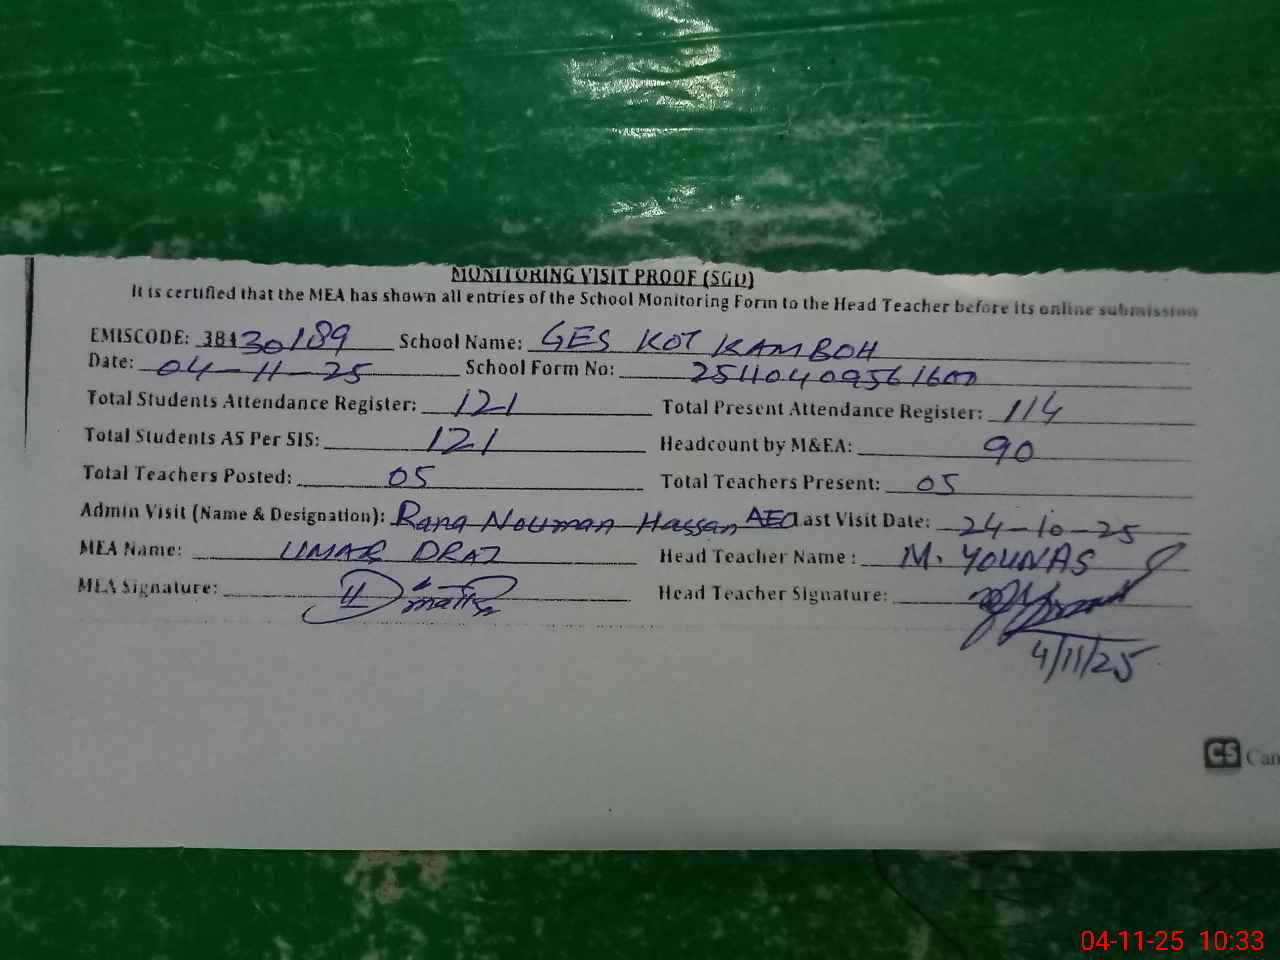 MONITORING VISIT PROOF (SGD)
It is certified that the MEA has shown all entries of the School Monitoring Form to the Head Teacher before its online submission
EMISCODE: 38130189 School Name: GES KOT KAMBOH
Date: 04-11-25 School Form No: 25110409561600
Total Students Attendance Register: 121 Total Present Attendance Register: 114
Total Students AS Per SIS: 121 Headcount by M&EA: 90
Total Teachers Posted: 05 Total Teachers Present: 05
Admin Visit (Name & Designation): Rana Nouman Hassan AEO Last Visit Date: 24-10-25
MEA Name: UMAR DRAZ Head Teacher Name : M. YOUNAS
MEA Signature: Head Teacher Signature:
4/11/25
CS Cam
04-11-25 10:33